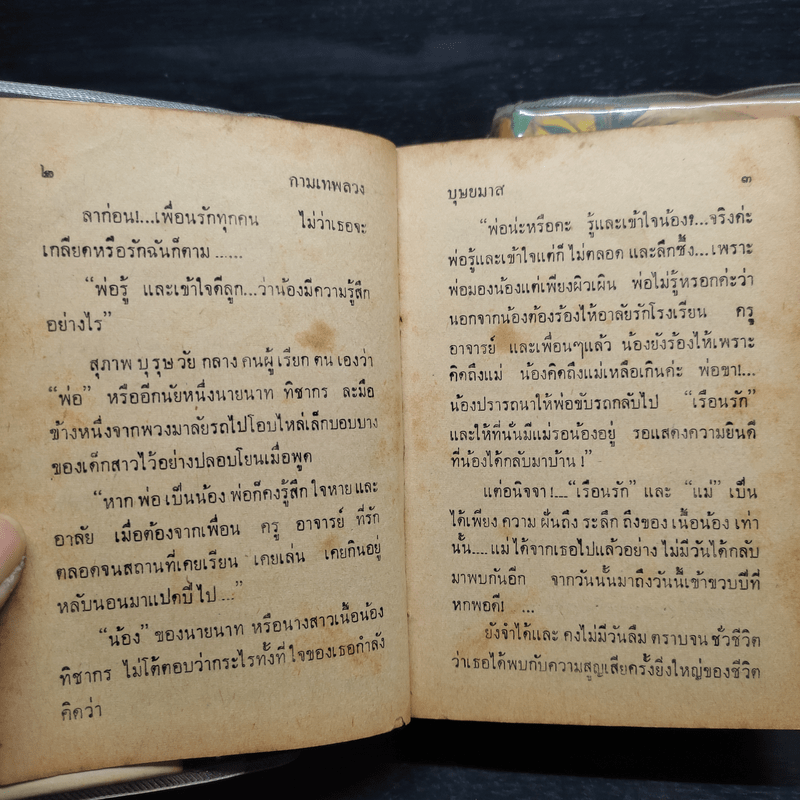 ๒
กามเทพลวง
ลาก่อน!...เพื่อนรักทุกคน ไม่ว่าเธอจะ
เกลียดหรือรักฉันก็ตาม ......
“พ่อรู้ และเข้าใจดีลูก...ว่าน้องมีความรู้สึก
อย่างไร”
สุภาพ บุรุษ วัย กลาง คนผู้ เรียก ตน เองว่า
“พ่อ” หรืออีกนัยหนึ่งนายนาท ทิชากร ละมือ
ข้างหนึ่งจากพวงมาลัยรถไปโอบไหล่เล็กบอบบาง
ของเด็กสาวไว้อย่างปลอบโยนเมื่อพูด
“หาก พ่อ เป็นน้อง พ่อก็คงรู้สึก ใจหาย และ
อาลัย เมื่อต้องจากเพื่อน ครู อาจารย์ ที่รัก
ตลอดจนสถานที่เคยเรียน เคยเล่น เคยกินอยู่
หลับนอนมาแปดปี ไป ...”
“น้อง” ของนายนาท หรือนางสาวเนื้อน้อง
ทิชากร ไม่โต้ตอบว่ากระไรทั้งที่ ใจของเธอกำลัง
คิดว่า
บุษยมาส
๓
“พ่อน่ะหรือคะ รู้และเข้าใจน้อง!...จริงค่ะ
พ่อรู้และเข้าใจแต่ก็ ไม่ตลอด และลึกซึ้ง... เพราะ
พ่อมองน้องแต่เพียงผิวเผิน พ่อไม่รู้หรอกค่ะว่า
นอกจากน้องต้องร้องไห้อาลัยรักโรงเรียน ครู
อาจารย์ และเพื่อนๆแล้ว น้องยังร้องไห้เพราะ
คิดถึงแม่ น้องคิดถึงแม่เหลือเกินค่ะ พ่อขา!...
น้องปรารถนาให้พ่อขับรถกลับไป “เรือนรัก”
และให้ที่นั่นมีแม่รอน้องอยู่ รอแสดงความยินดี
ที่น้องได้กลับมาบ้าน !”
แต่อนิจจา!....“เรือนรัก” และ “แม่” เป็น
ได้เพียง ความ ฝันถึง ระลึก ถึงของ เนื้อน้อง เท่า
นั้น.... แม่ ได้จากเธอไปแล้วอย่าง ไม่มี วันได้กลับ
มาพบกันอีก จากวันนั้นมาถึงวันนี้เข้าขวบปีที่
หกพอดี! ...
ยังจำได้และ คงไม่มีวันลืม ตราบจน ชั่วชีวิต
ว่าเธอได้พบกับความสูญเสียครั้งยิ่งใหญ่ของชีวิต